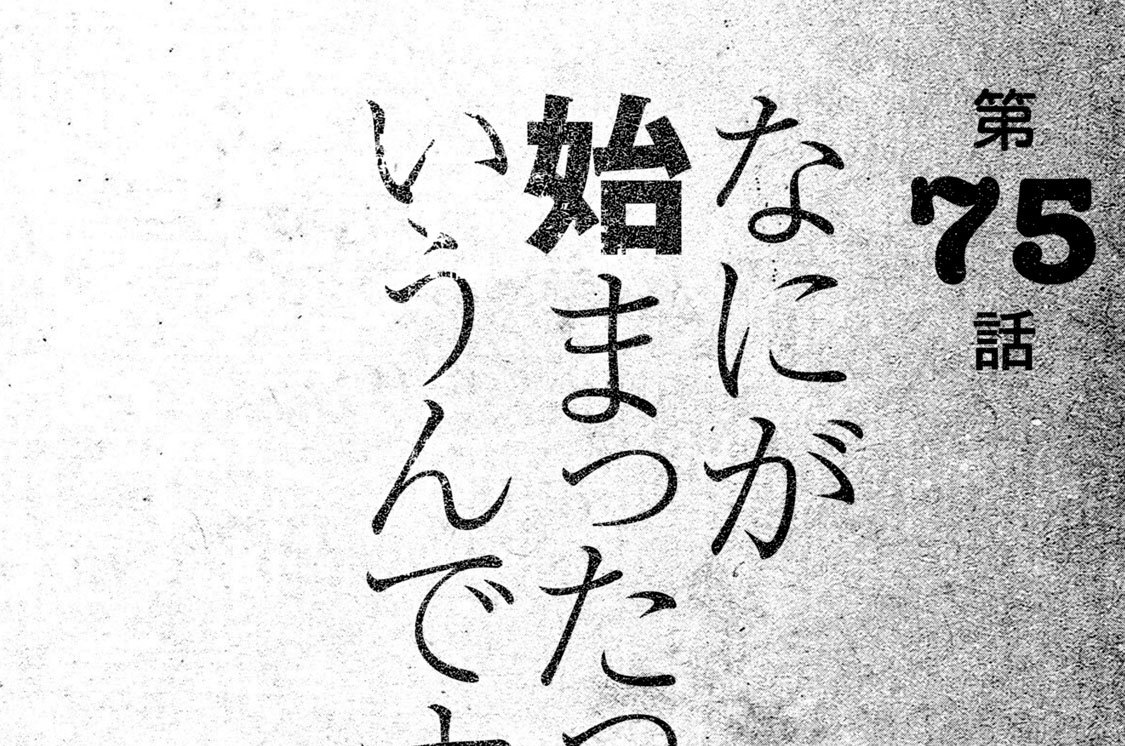 第75話
なにが
始まったっ
いうんで